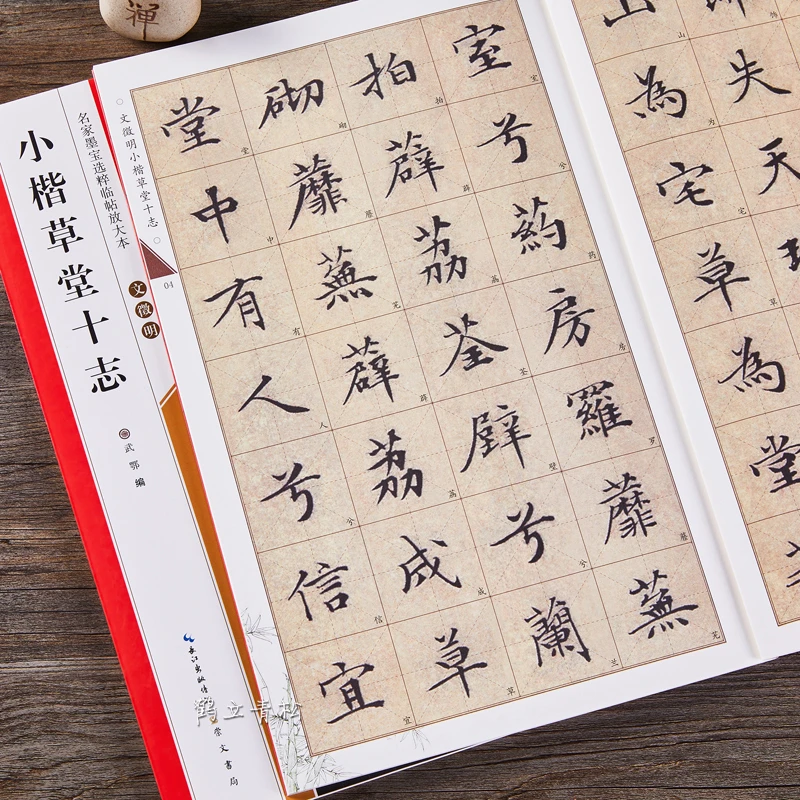 禪
名家墨宝选粹临帖放大本
小楷草堂十志
文徵明
武鄂 编
长江出版传媒
崇文书局
文徵明小楷草堂十志
04
失天
山為宅草為堂
山为宅草
室兮葯房羅蘼蕪
室兮药房罗蘼芜
拍薜荔荃壁兮蘭
拍薜荔荃壁兮兰
砌蘼蕪薜荔成草
砌蘼芜薜荔成草
堂中有人兮信宜
堂中有人兮信宜
鹤立青松